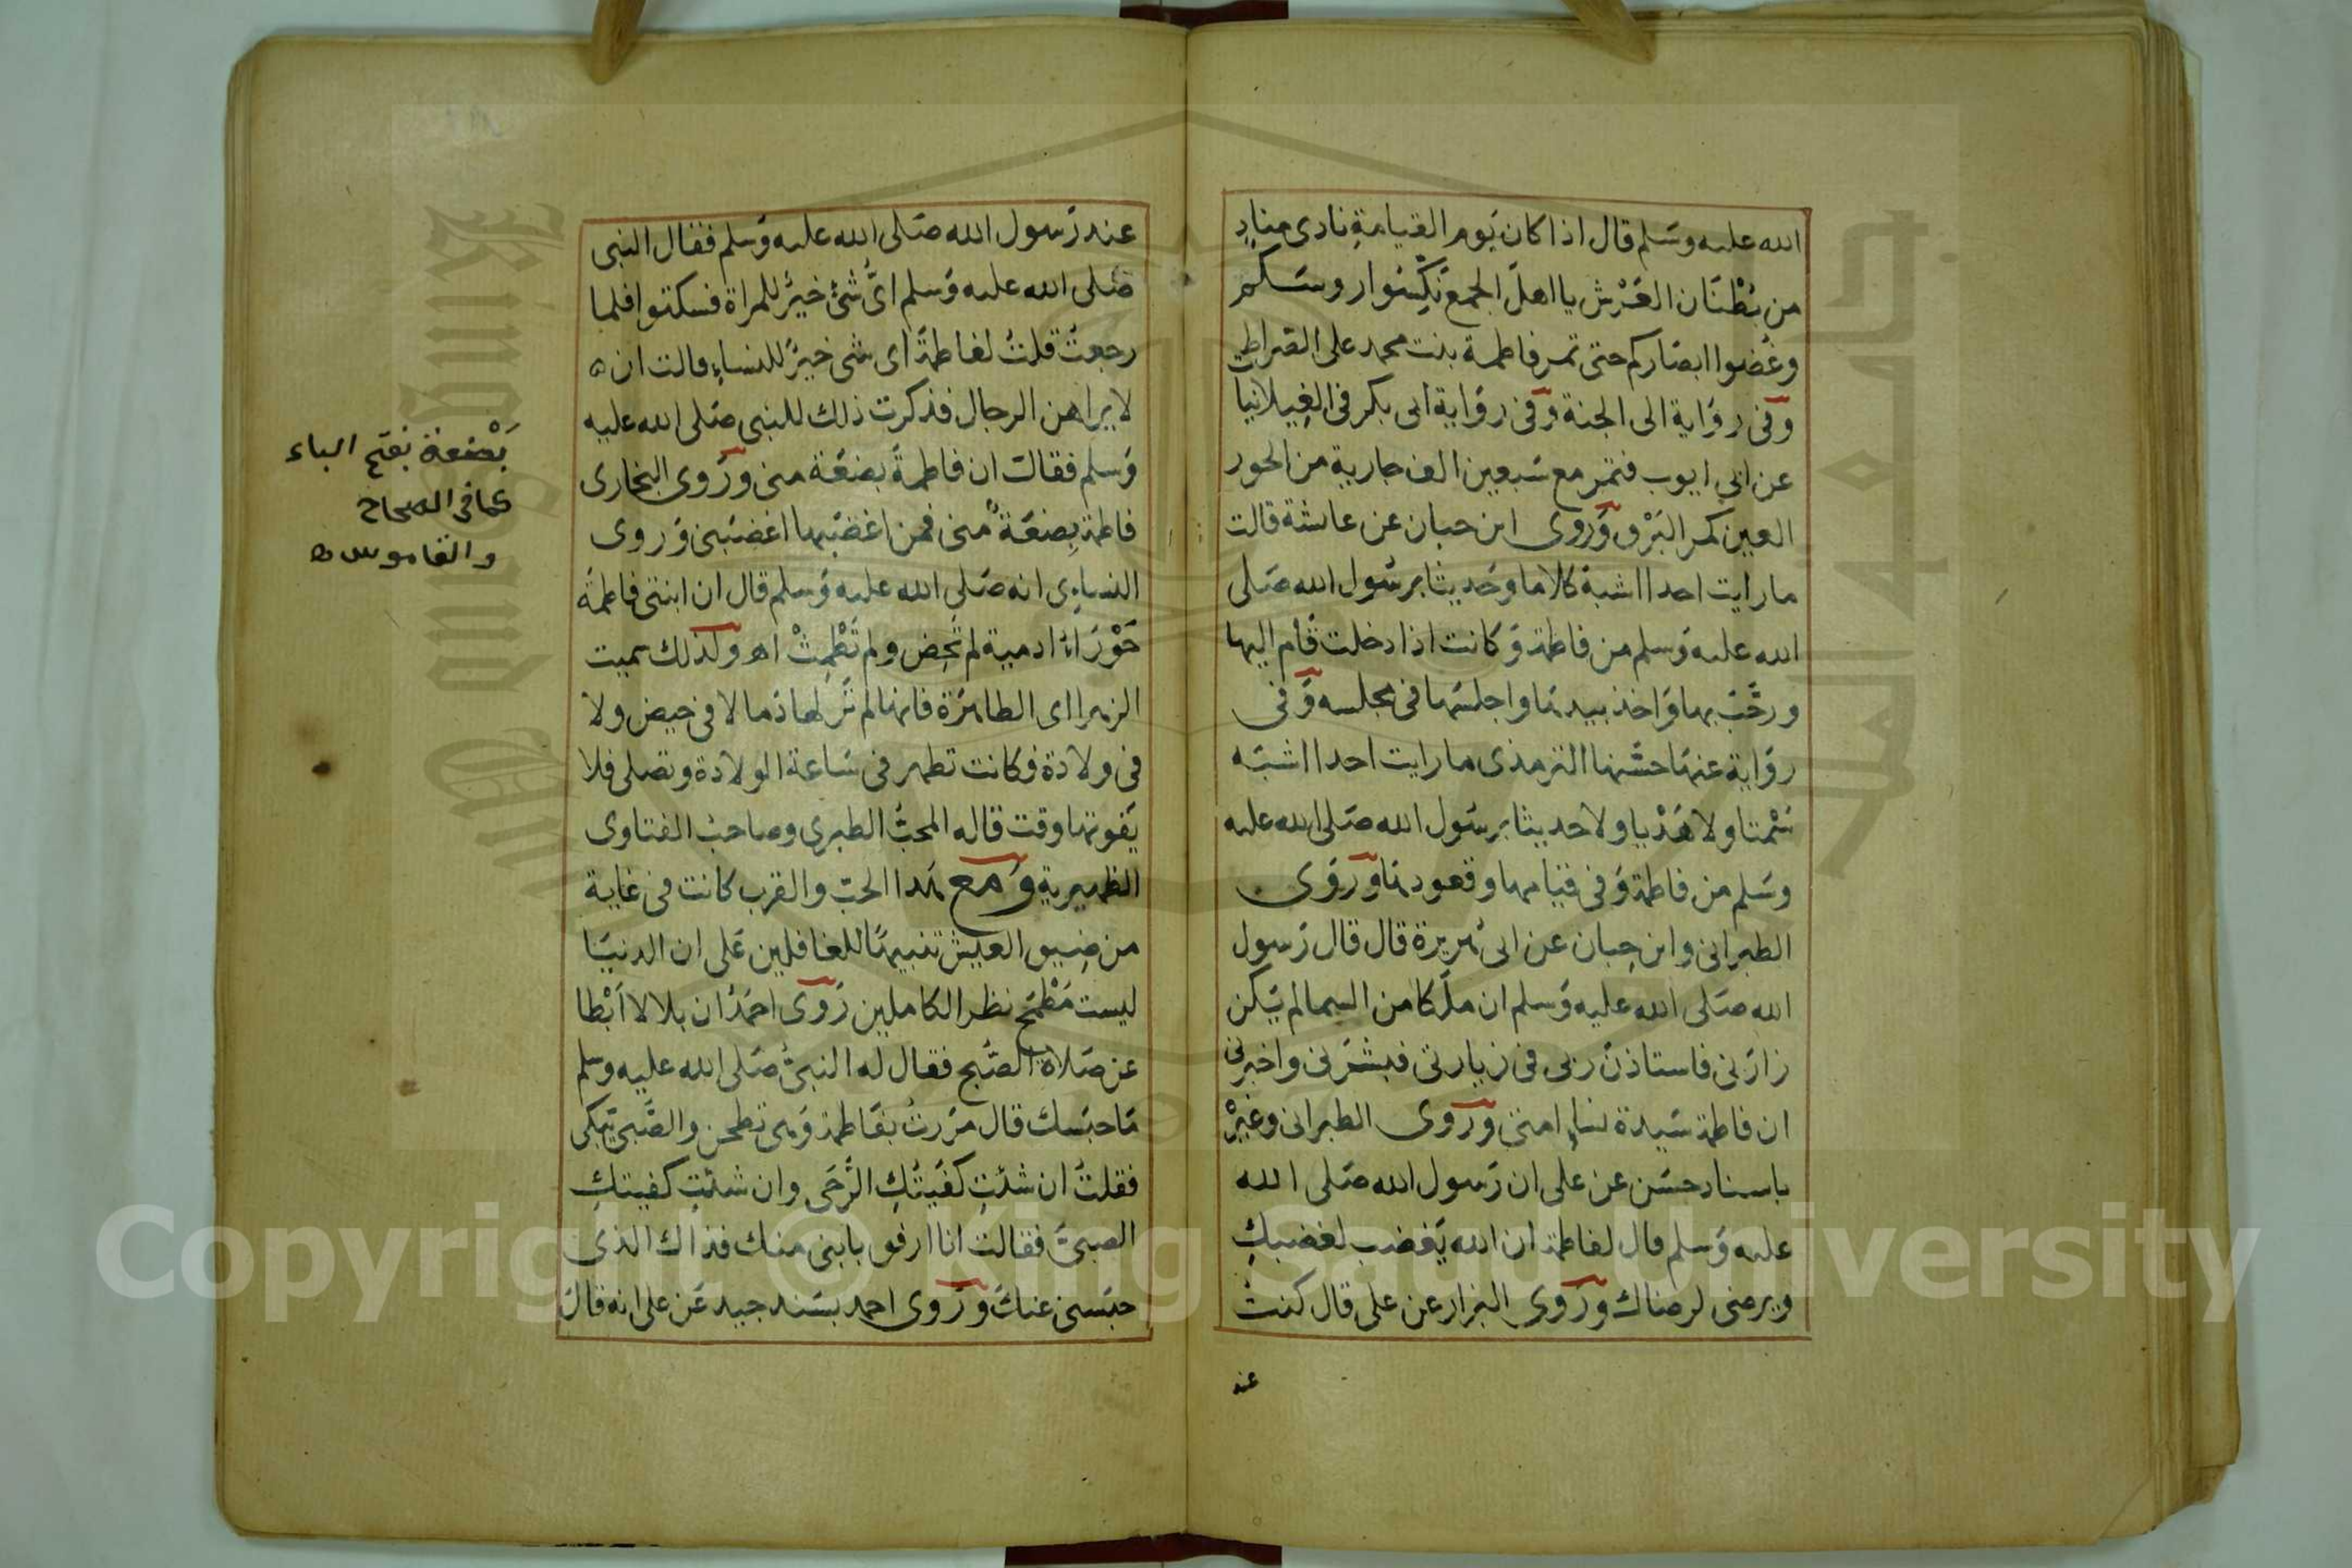 الله عليه وسَلم قال اذا كان يَوم القيامةِ نادى منادٍ
من بُطْنَان العَرْش يا اهلَ الجمع نَكِّسُوا روسَكم
وغُضوا ابصَاركم حتى تمر فاطمة بنت محمد على الصّراط
وَفى روَاية الى الجنة وَفى روَاية ابى بكر فى الغيلانيا
عن ابى ايوب فتمر مع سَبعين الف جارية من الحور
العين كمر البَرْق وَروى ابن حبان عن عائشة قالت
ما رايت احدا اشبهَ كلاما وحَديثا برسُول الله صَلى
الله عليه وَسلم من فاطمة وَكانت اذا دخلت قام اليها
ورحَّبَ بها وَاخذ بيدهَا واجلسَها فى مجلسه وَفى
روَاية عنهَا حسَّنها الترمذى ما رايت احدا اشبَه
سَمْتا ولا هَدْيا ولا حديثا برسُول الله صَلى الله عليه
وسَلم من فاطمة وَفى قيامها وقعودهَا وَروَى
الطبرانى وابن حِبان عن ابى هُريرة قال قال رَسول
الله صَلى الله عليه وَسلم ان ملَكا من السما لم يَكن
زارَنى فاستاذنَ ربى فى زيارتى فبشرَنى واخبرنى
ان فاطمة سَيدة نساءِ امتى وَروى الطبرانى وغيرْ
باسناد حسَن عن على ان رَسول الله صَلى الله
عليه وَسلم قال لفاطمة ان الله يَغضب لغضبكِ
ويرضى لرضاك وَروى البزار عن على قال كنتُ
عند
عند رَسول الله صَلى الله عليه وَسلم فقال النبى
صَلى الله عليه وَسلم اىُّ شئ خيرٌ للمراة فسكتوا فلما
رجعتُ قلتُ لفاطمةَ اى شى خيرٌ للنساءِ قالت ان ه
لا يراهن الرجال فذكرت ذلك للنبى صَلى الله عليه
وَسلم فقالَ ان فاطمةَ بضعَة منى وَروى البخارى
فاطمة بضعَةٌ منى فمن اغضَبها اغضَبنى وَروى
النساءِى انه صَلى الله عليه وَسلم قال ان ابنتى فاطمةَ
حَوْرَاءُ ادمية لم تحِض ولم تَطْمِثْ اه ولذلك سميت
الزهرا اى الطاهرَة فانها لم تَر لها دَما لا فى حيض ولا
فى ولادة فكانت تطهر فى سَاعة الولادة وتصلى فلا
يَفوتها وقت قاله المحبُّ الطبرى وصاحبُ الفتاوى
الظهيرية وَمع هَذا الحبّ والقرب كانت فى غاية
من ضيق العيش تنبيهًا للغافلين عَلى ان الدنيَا
ليست مَطْمَح نظر الكاملين رَوى احمَدُ ان بلالا اَبْطا
عن صَلاة الصُّبح فقال له النبىُّ صَلى الله عليه وسلم
مَا حبَسك قال مَررتُ بفَاطمة وَهى تطحن والصَّبى يَبكى
فقلتُ ان شئتِ كفَيتُكِ الرَّحَى وان شئتِ كفيتكِ
الصبىَّ فقالت انا ارفق بابنى منك فذاك الذى
حبَسنى عنكَ وَرَوى احمد بسَند جيد عَن على انه قالَ
بَضْعة بفتح الباء
كما فى الصحاح
والقاموس ه
Copyright © King Saud University